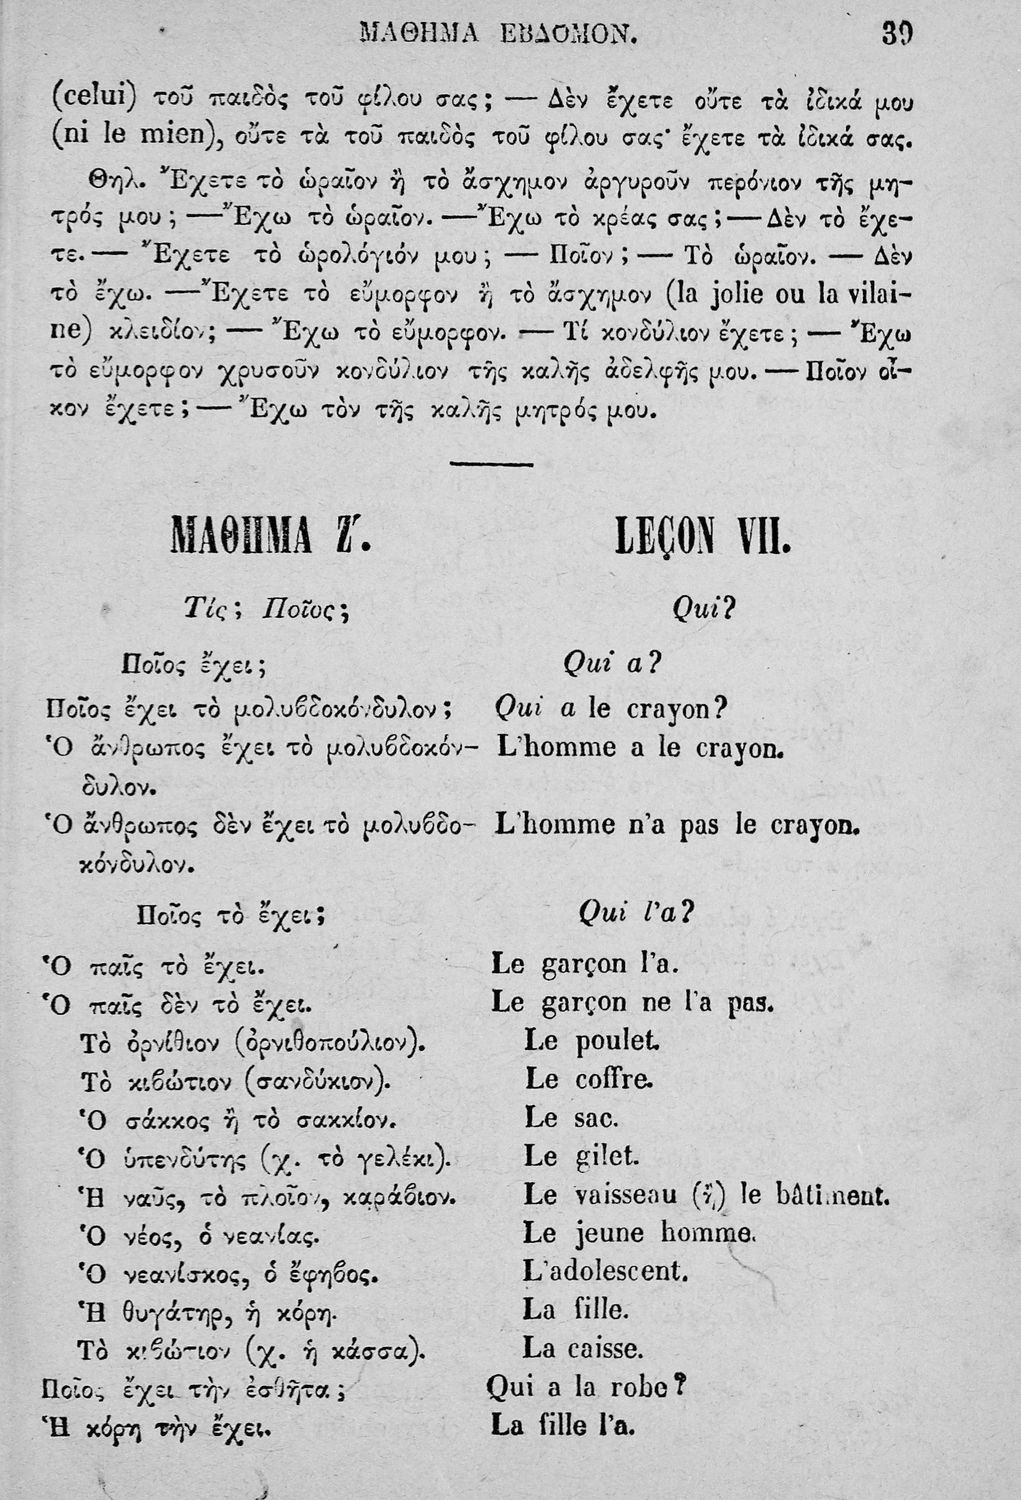 ΜΑΘΗΜΑ ΕΒΔΟΜΟΝ. 39
(celui) τοῦ παιδὸς τοῦ φίλου σας; — Δὲν ἔχετε οὔτε τὰ ἰδικά μου
(ni le mien), οὔτε τὰ τοῦ παιδὸς τοῦ φίλου σας· ἔχετε τὰ ἰδικά σας.
Θηλ. Ἔχετε τὸ ὡραῖον ἢ τὸ ἄσχημον ἀργυροῦν περόνιον τῆς μη-
τρός μου; — Ἔχω τὸ ὡραῖον. — Ἔχω τὸ κρέας σας; — Δὲν τὸ ἔχε-
τε. — Ἔχετε τὸ ὡρολόγιόν μου; — Ποῖον; — Τὸ ὡραῖον. — Δὲν
τὸ ἔχω. — Ἔχετε τὸ εὔμορφον ἢ τὸ ἄσχημον (la jolie ou la vilai-
ne) κλειδίον; — Ἔχω τὸ εὔμορφον. — Τί κονδύλιον ἔχετε; — Ἔχω
τὸ εὔμορφον χρυσοῦν κονδύλιον τῆς καλῆς ἀδελφῆς μου. — Ποῖον οἶ-
κον ἔχετε; — Ἔχω τὸν τῆς καλῆς μητρός μου.
ΜΑΘΗΜΑ Ζ΄. LEÇON VII.
Τίς; Ποῖος; Qui?
Ποῖος ἔχει; Qui a?
Ποῖος ἔχει τὸ μολυβδοκόνδυλον; Qui a le crayon?
Ὁ ἄνθρωπος ἔχει τὸ μολυβδοκόν- L'homme a le crayon.
δυλον.
Ὁ ἄνθρωπος δὲν ἔχει τὸ μολυβδο- L'homme n'a pas le crayon.
κόνδυλον.
Ποῖος τὸ ἔχει; Qui l'a?
Ὁ παῖς τὸ ἔχει. Le garçon l'a.
Ὁ παῖς δὲν τὸ ἔχει. Le garçon ne l'a pas.
Τὸ ὀρνίθιον (ὀρνιθοπούλιον). Le poulet.
Τὸ κιβώτιον (σανδύκιον). Le coffre.
Ὁ σάκκος ἢ τὸ σακκίον. Le sac.
Ὁ ὑπενδύτης (χ. τὸ γελέκι). Le gilet.
Ἡ ναῦς, τὸ πλοῖον, καράβιον. Le vaisseau (ἢ) le bâtiment.
Ὁ νέος, ὁ νεανίας. Le jeune homme.
Ὁ νεανίσκος, ὁ ἔφηβος. L'adolescent.
Ἡ θυγάτηρ, ἡ κόρη. La fille.
Τὸ κιβώτιον (χ. ἡ κάσσα). La caisse.
Ποῖος ἔχει τὴν ἐσθῆτα; Qui a la robe?
Ἡ κόρη τὴν ἔχει. La fille l'a.